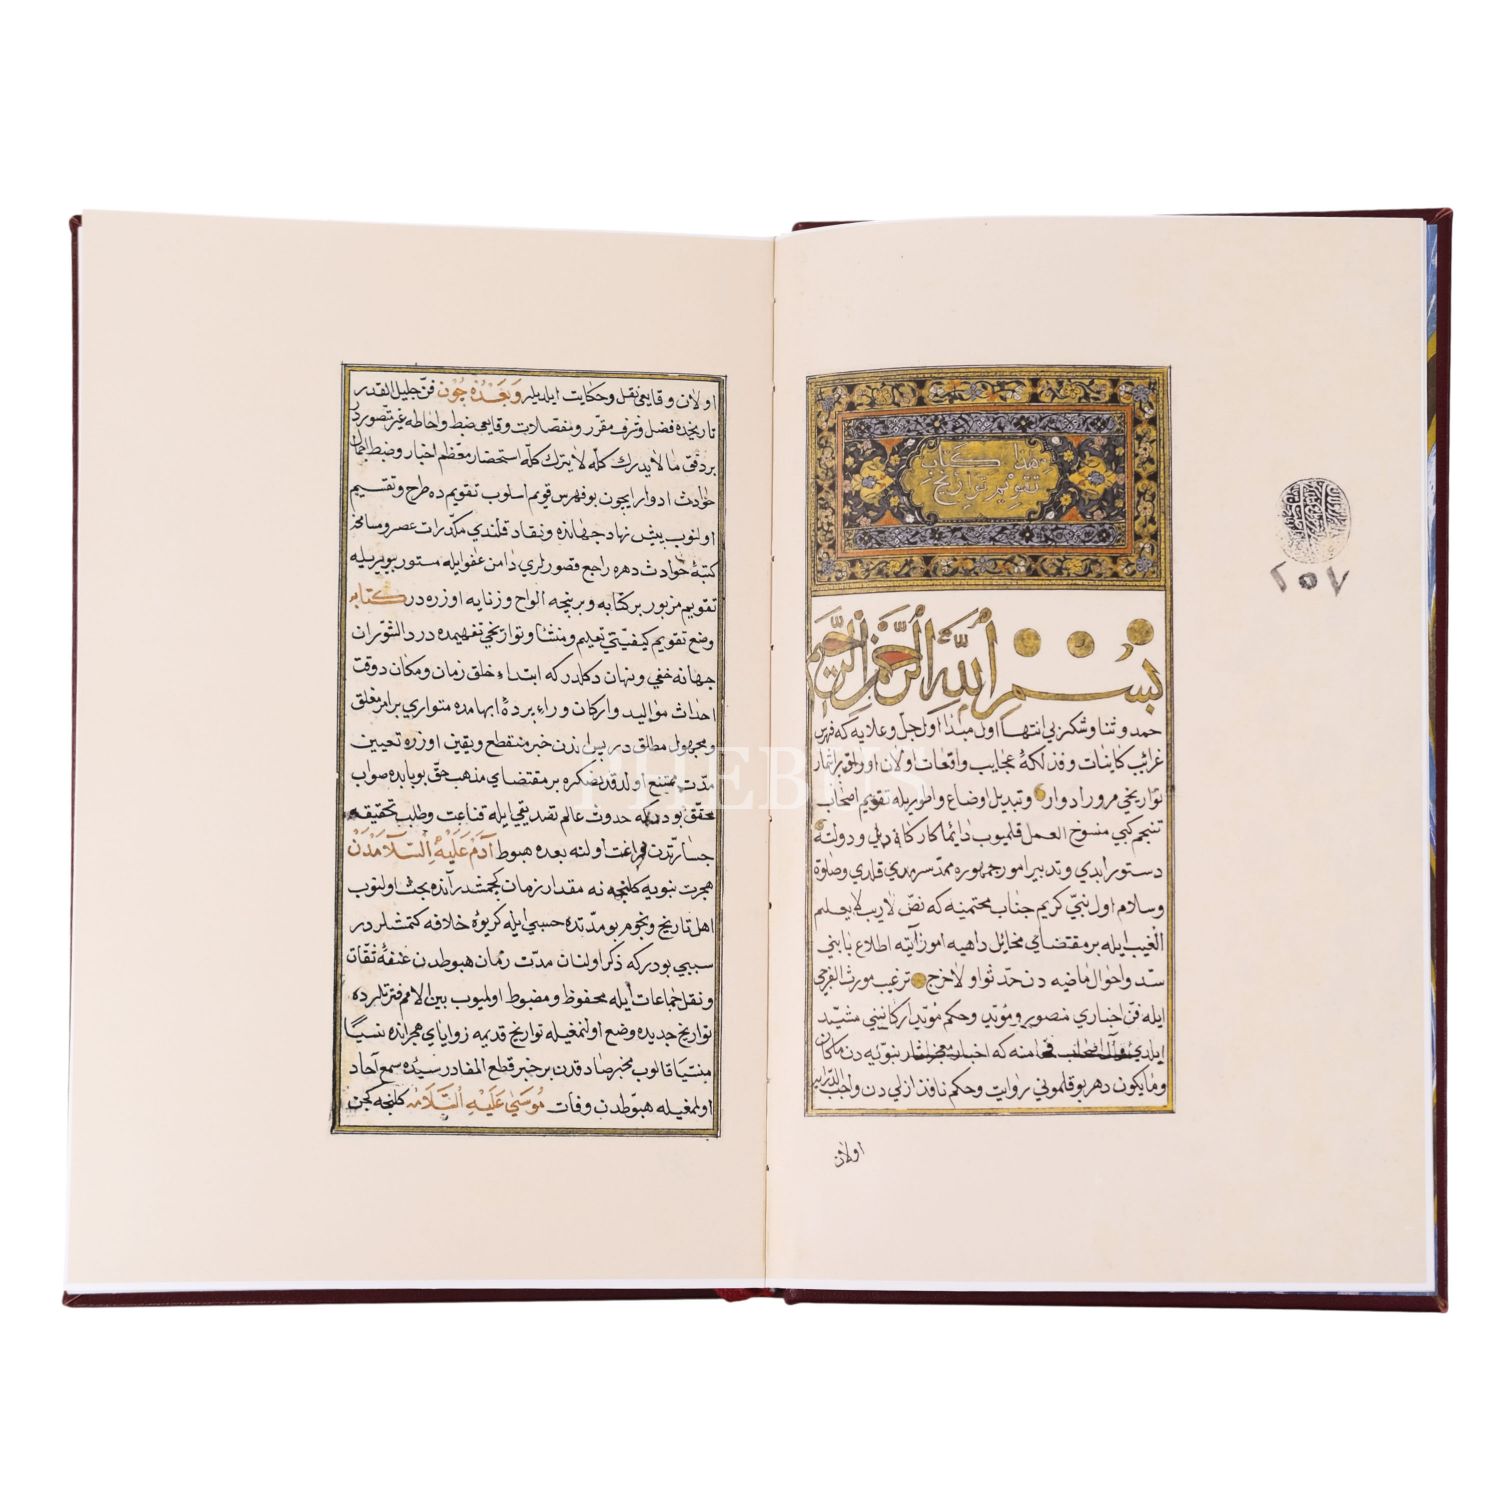 هذا كتاب
تقويم تواريخ
بسم الله الرحمن الرحيم
حمد و ثنا و شكر بي انتها اول مبدأ اول جل و علايه كه فهرس
غرائب كاينات و فذلكهٔ عجايب واقعات اولان اوراق پر اثمار
تواريخي مرور ادوار و تبديل اوضاع و اطوريله تقويم اصحاب
تنجيم كبي منسوخ العمل قلميوب دايما كاركنان دين و دولته
دستور ابدي و تدبير امور جمهوره ممد سرمدي قلدي و صلوة
و سلام اول نبي كريم جنابه محتمينه كه نص لاريب لا يعلم
الغيب ايله بر مقتضاي مخائل داهيه امور آتيه اطلاع بابني
سد و احوال ماضيه دن حدثوا و لا حرج ترغيب مورث الفرجي
ايله فن اخباري منصور و مؤيد و حكم مؤيد اركانيني مشيد
ايلدي و آل اصحاب فخامنه كه اخبار معجزاشار نبويه دن ماكان
و مايكون دهر بوقلموني روايت و حكم نافذ ازلي دن واجب التدابير
اولان
٢٥٧
اولان وقايعي نقل و حكايت ايلديلر و بعده چون فن جليل القدر
تاريخده فضل و شرف مقرر و مفصلات وقايعي ضبط و احاطه غير متصوردر
بر وفق ما لا يدرك كله لا يترك كله استحضار معظم اخبار و ضبط اجمال
حوادث ادوار ايچون بو فهرس قويم اسلوب تقويم ده طرح و تقسيم
اولنوب پيش نهاد جهانده و نقاد قلندي مكدرات عصر و مسامحه
كتبهٔ حوادث دهره راجع قصورلري دامن عفو ايله مستور بيوريله
تقويم مزبور بر كتابه و بر نيچه الواح و زنايه اوزره در كتابه
وضع تقويم كيفيتي تعليم و منشأ و تواريخي تفهيمده در دالشوران
جهانه خفي و نهان دكلدر كه ابتداء خلق زمان و مكان و وقت
احداث مواليد و اركان وراء پردهٔ ابهامده متواري بر امر مغلق
و مجهول مطلق در پس اندن خبر منقطع و يقين اوزره تعيين
مدت ممتنع اولدقد نصكره بر مقتضاي مذهب حق بو بابده صواب
محقق بودر كه حدوث عالم تصديقي ايله قناعت و طلب تحقيقه
جسارتدن فراغت اولنه بعده هبوط آدم عليه السلامدن
هجرت نبويه كلنجه نه مقدار زمان كچمشدر آنده بحث اولنوب
اهل تاريخ و نجوم بو مدتده حسبي ايله كريوهٔ خلافه كتمشلردر
سببي بودر كه ذكر اولنان مدت زمان هبوطدن عنعنهٔ ثقات
و نقل جماعات ايله محفوظ و مضبوط اولميوب بين الامم فترتلرده
تواريخ جديده وضع اولنمغيله تواريخ قديمه زواياي هجرانده نسيا
منسيا قالوب مخبر صادقدن بر خبر قطع المفادر سيده سمع آحاد
اولمغيله هبوطدن وفات موسي عليه السلامه كلنجه كچن
PHEBUS